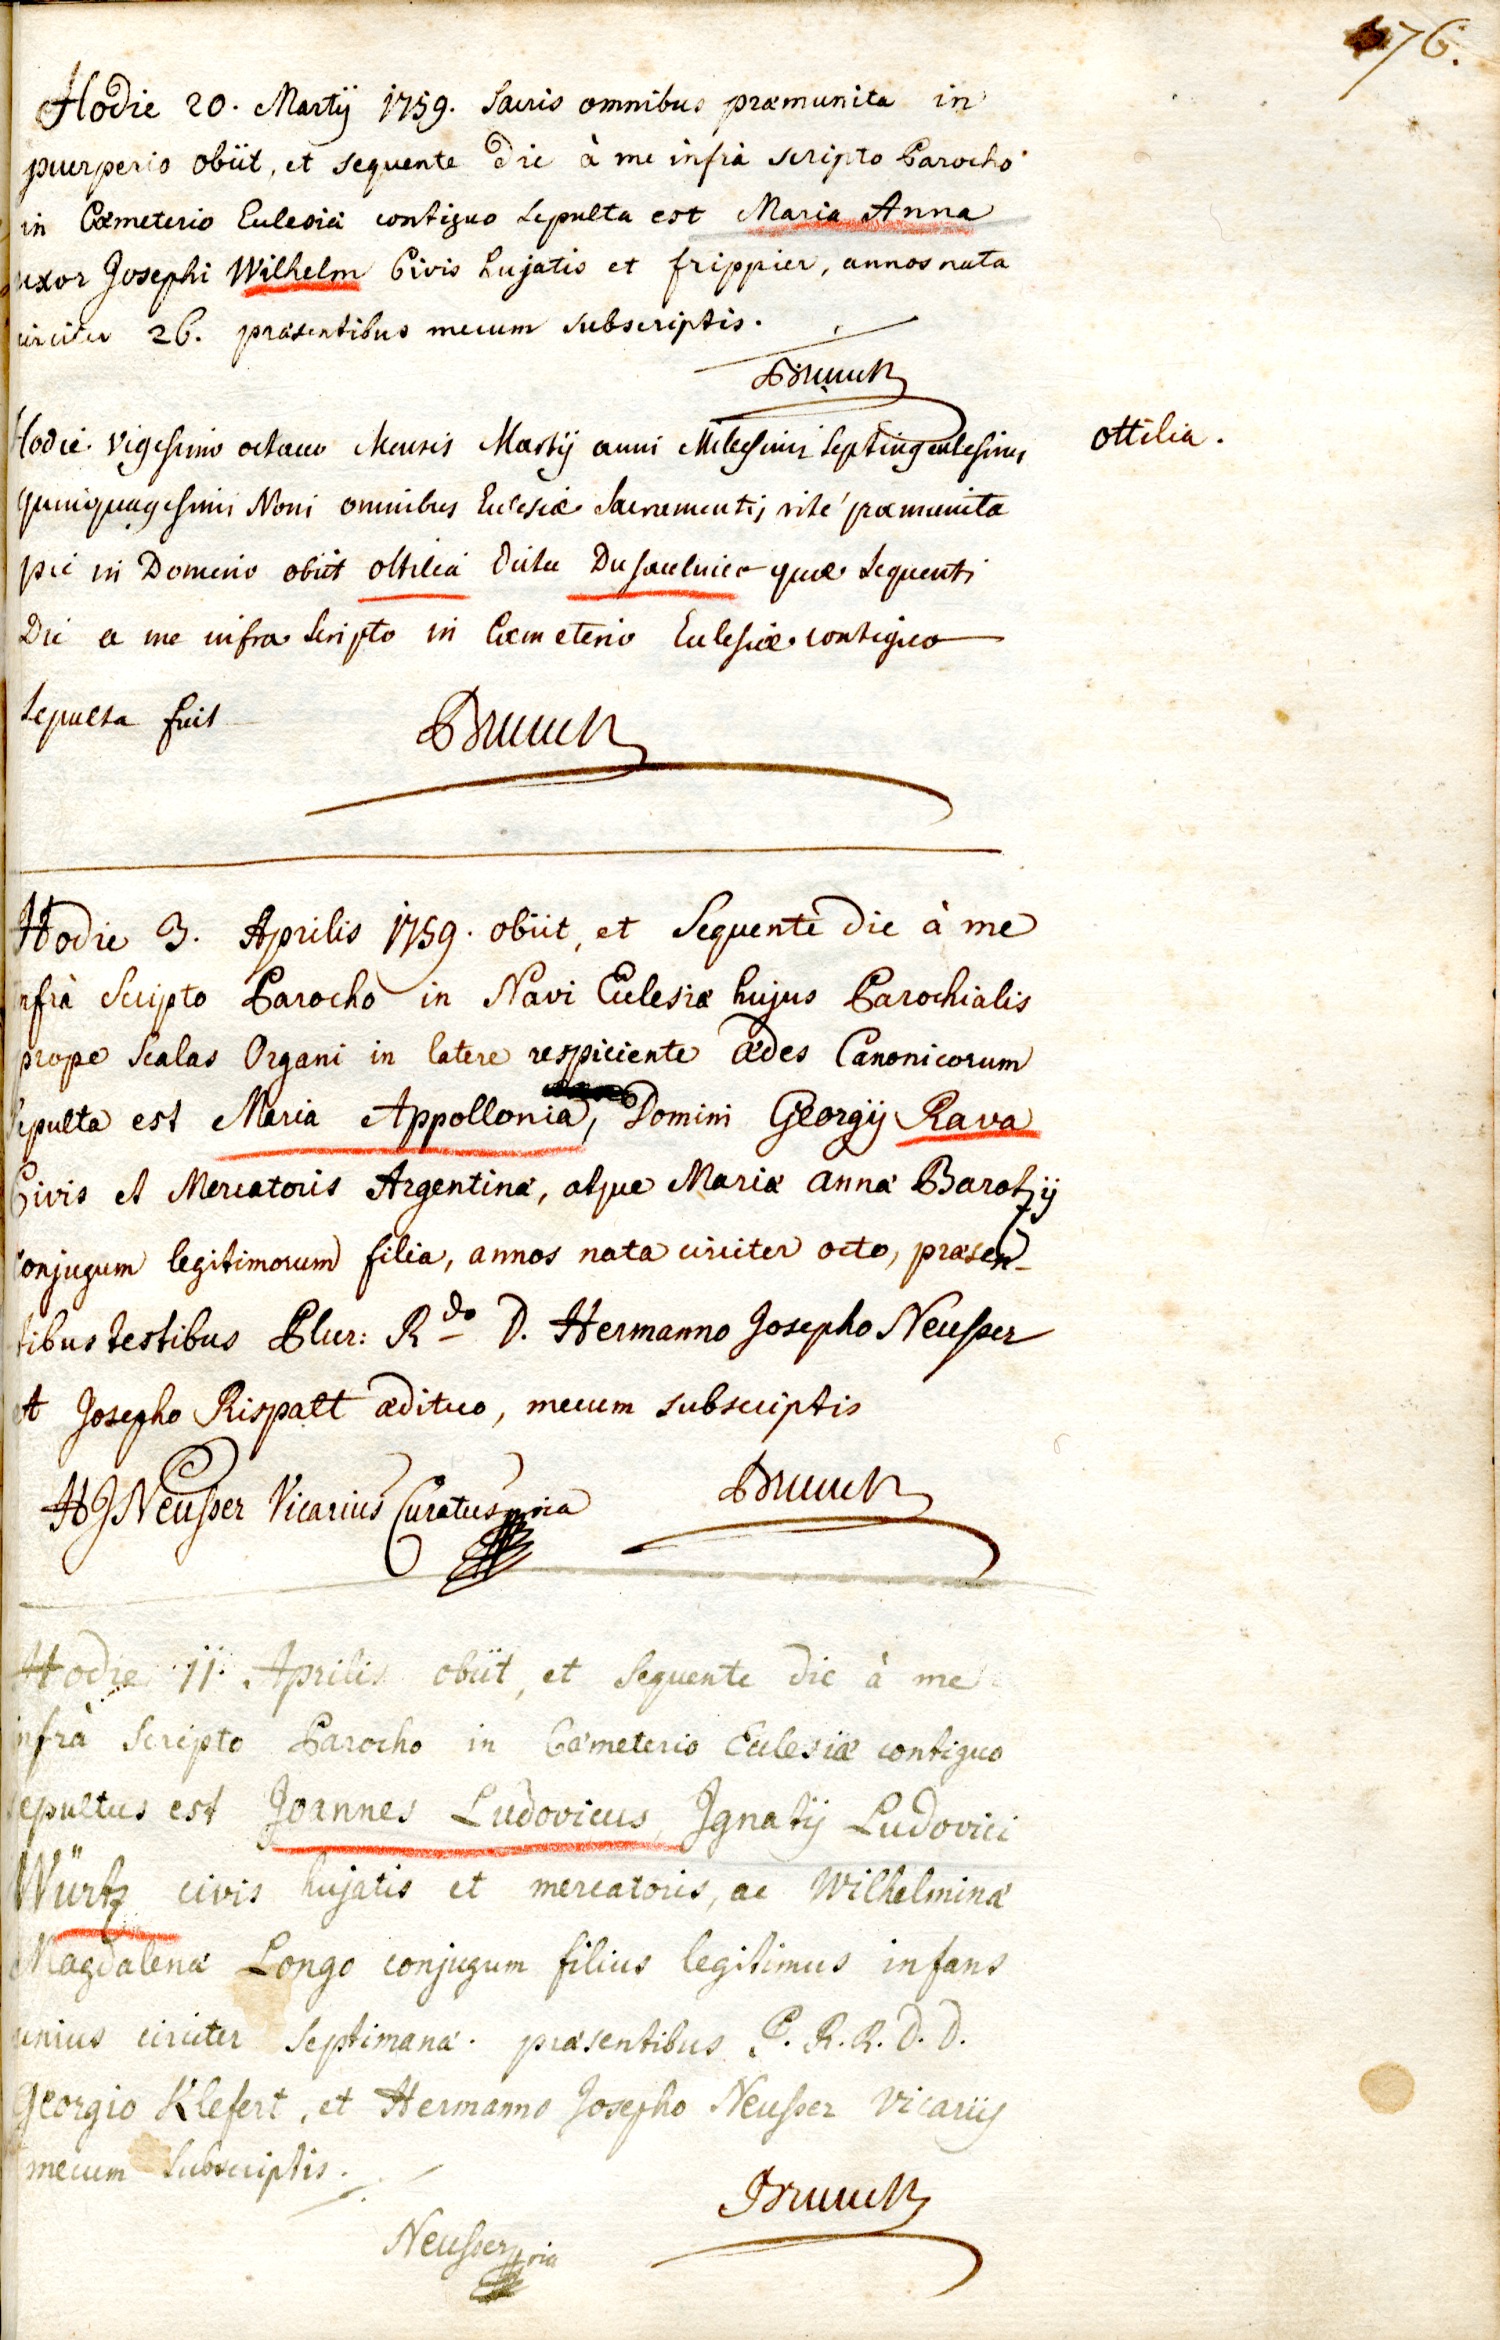 76.
Hodie 20. Martij 1759. Sacris omnibus præmunita in
puerperio obiit, et sequente die à me infrà scripto Parocho
in Cœmeterio Ecclesiæ contiguo sepulta est Maria Anna
uxor Josephi Wilhelm Civis hujatis et frippier, annos nata
circiter 26. præsentibus mecum subscriptis.
Brunck
Hodie vigesimo octavo Mensis Martij anni Millesimi Septingentesimi
ottilia.
quinquagesimi Noni omnibus Ecclesiæ Sacramentis rité præmunita
pie in Domino obiit ottilia dicta Dusaulnier quæ sequenti
Die a me infra scripto in Cœmeterio Ecclesiæ contiguo
sepulta fuit
Brunck
Hodie 3. Aprilis 1759. obiit, et Sequente die à me
infrà Scripto Parocho in Navi Ecclesiæ hujus Parochialis
prope Scalas Organi in latere respiciente ædes Canonicorum
sepulta est Maria Appollonia, Domini Georgij Rava
Civis et Mercatoris Argentinæ, atque Mariæ Annæ Baratzij
conjugum legitimorum filia, annos nata circiter octo, præsen-
tibus testibus Plur: Rdo D. Hermanno Josepho Neusser
et Josepho Rispalt ædituo, mecum subscriptis
HJ Neusser Vicarius Curatus mria
Brunck
Hodie 11. Aprilis obiit, et sequente die à me
infrà Scripto Parocho in Cœmeterio Ecclesiæ contiguo
sepultus est Joannes Ludovicus, Ignatij Ludovici
Würtz civis hujatis et mercatoris, ac Wilhelminæ
Magdalenæ Longo conjugum filius legitimus infans
unius circiter septimanæ. præsentibus P. R. R. D. D.
Georgio Klefert, et Hermanno Josepho Neusser vicariis
mecum subscriptis.
Brunck
Neusser mria